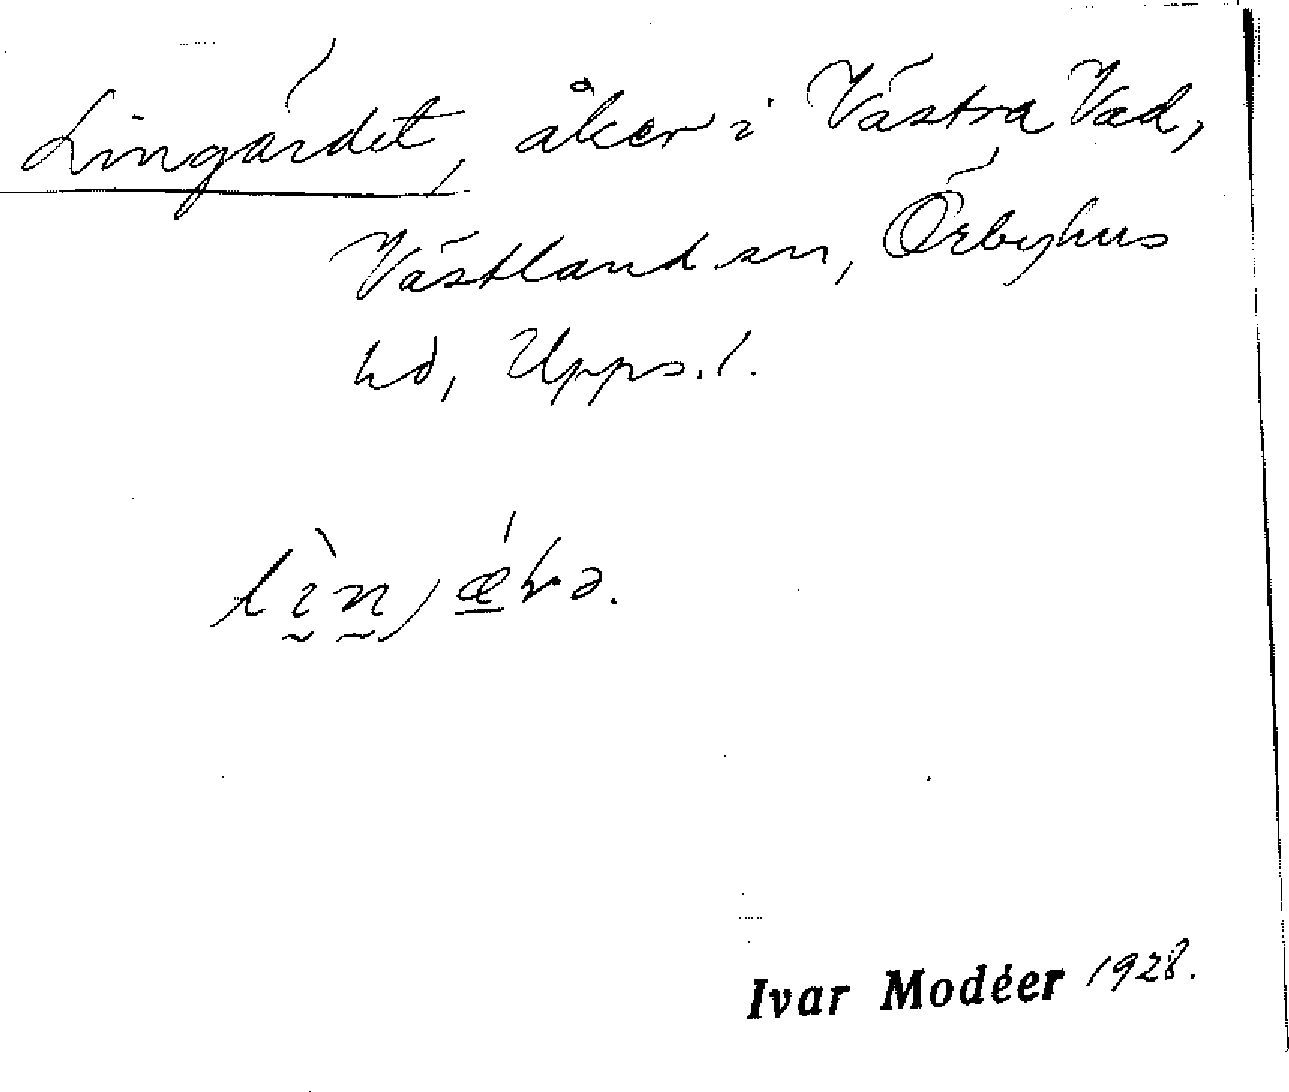 Lingärdet, åker i Västra Vad,
Västland sn, Örbyhus
hd, Upps. l.
Ivar Modéer 1928.